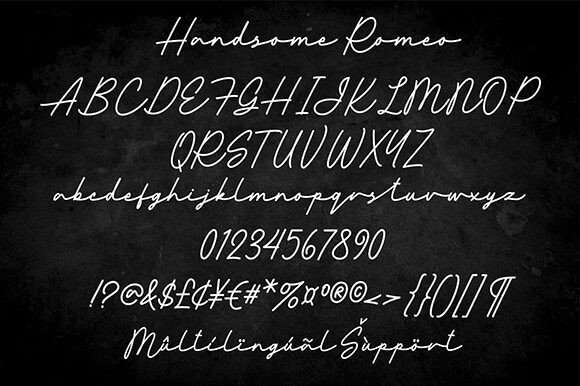 Handsome Romeo
ABCDEFGHIJKLMNOP
QRSTUVWXYZ
abcdefghijklmnopqrstuvwxyz
01234567890
!?@&$£¢¥€#*%¤º®©<>{}()[]¶
Mûltílïngúãl Šùppört